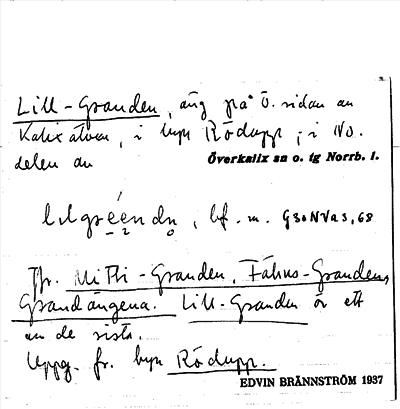 Lill-Granden, äng på ö. sidan av
Kalix älven, i byn Rödupp, i NO.
delen av Överkalix sn o. tg Norrb. l.
lılgrééndn, bf. m. GsoNVa3,68
Jfr. Mitti-Granden, Fähus-Granden,
Grandängena. Lill-Granden är ett
av de sista.
Uppg. fr. byn Rödupp.
EDVIN BRÄNNSTRÖM 1937